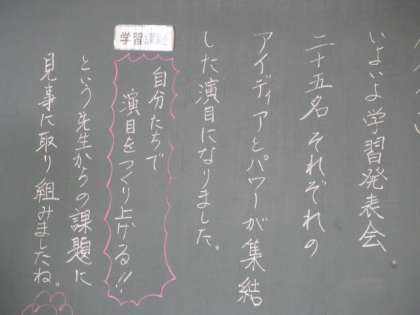 いよいよ学習発表会。
二十五名 それぞれの
アイディアとパワーが集結
した演目になりました。
学習課題
自分たちで
演目をつくり上げる!!
という先生からの課題に
見事に取り組みましたね。